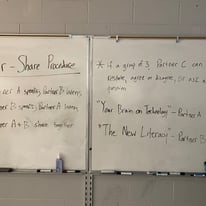 r - Share Procedure
ner A speaks, Partner B listens
ner B speaks, Partner A listens
ner A + B share together
* if a group of 3, Partner C can
restate, agree or disagree, or ask a
question
"Your Brain on Technology" - Partner A
"The New Literacy" - Partner B